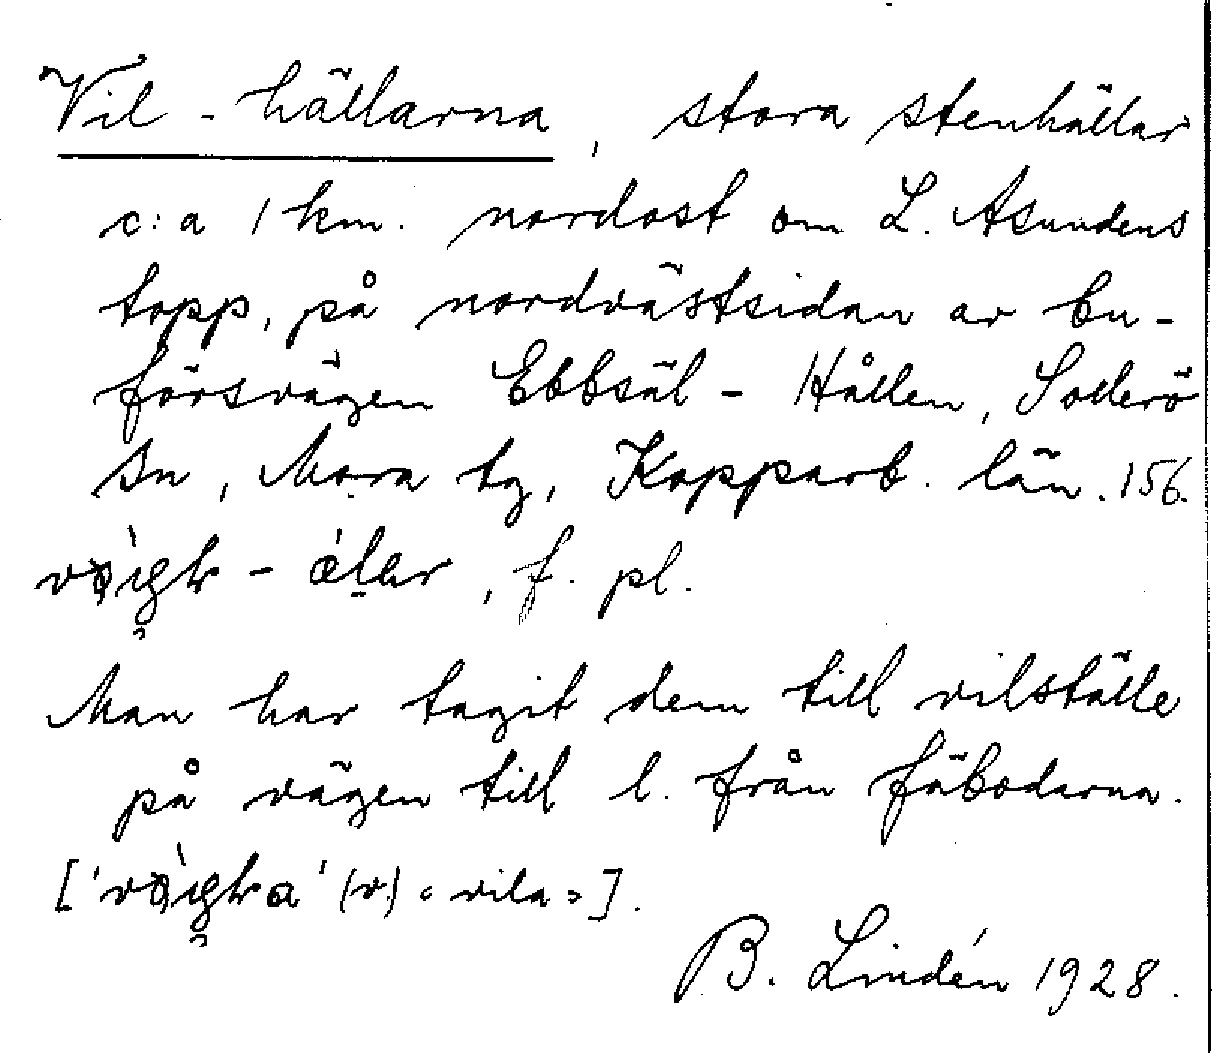 Vil-hällarna, stora stenhällar
c:a 1 km. nordost om L. Asundens
topp, på nordvästsidan av bu-
försvägen Ebbsäl - Hållen, Sollerö
sn, Mora tg, Kopparb. län. 156.
, f. pl.
Man har tagit dem till vilställe
på vägen till l. från fäbodarna.
(v) "vila"].
B. Lindén 1928.